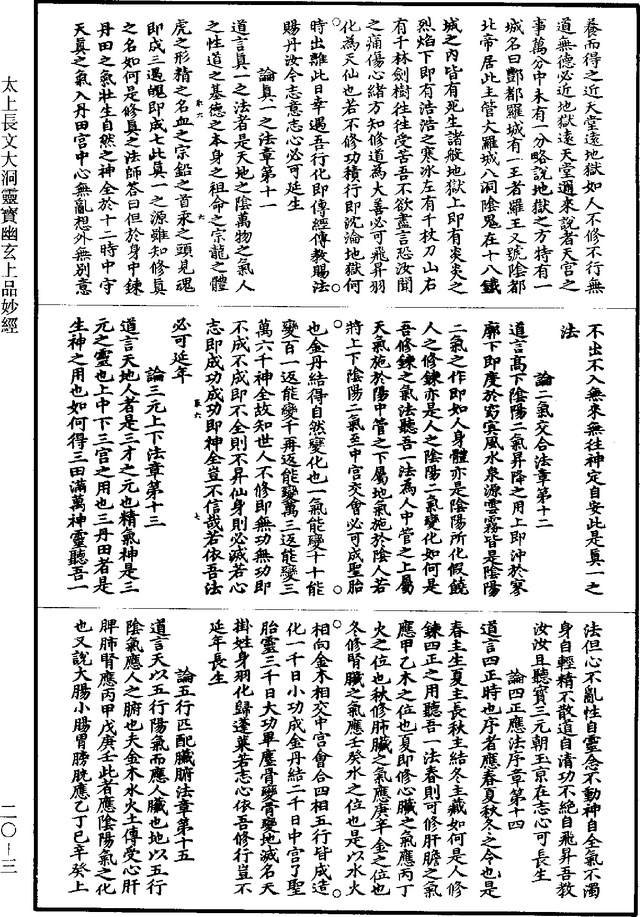 養而得之近天堂遠地獄如人不修不行無
道無德必近地獄遠天堂邇來說者天宮之
事萬分中未有一分略說地獄之方特有一
城名曰酆都羅城有一王者羅王又號陰都
北帝居此主管大羅城八洞陰鬼在十八鐵
城之內皆有死生諸般地獄上即有炎炎之
烈焰下即有浩浩之寒冰左有千杖刀山右
有千林劍樹往往受苦吾不欲盡言恐汝聞
之痛傷心緒方知修道為大善必可飛昇羽
化為天仙也若不修功積行即沉淪地獄何
時出離此日幸遇吾行化即傳經傳教賜法
賜丹汝今志意志心必可延生
論真一之法章第十一
道言真一之法者是天地之陰萬物之氣人
之性道之基德之本身之祖命之宗龍之體
虎之形精之名血之宗鉛之首汞之頭見魂
即成三遇魄即成七此真一之源雖知修真
之名如何是修真之法師荅曰但於身中鍊
丹田之氣壯生自然之神全於十二時中守
天真之氣入丹田宮中心無亂想外無別意
不出不入無來無往神定自安此是真一之
法
論二氣交合法章第十二
道言高下陰陽二氣昇降之用上即沖於寥
廓下即度於窈冥風水泉源雲霧皆是陰陽
二氣之作即如人身體亦是陰陽所化假饒
人之修鍊亦是人之陰陽二氣變化如何是
吾修鍊之氣法聽吾一法為人中管之上屬
天氣施於陽中管之下屬地氣施於陰人若
將上下陰陽二氣至中宮交會必可成聖胎
也金丹結得自然變化也一氣能變十十能
變百一返能變千再返能變萬三返能變三
萬六千神全故知世人不修即無功無功即
不成不成即不全則不昇仙身則必滅若心
志即成功成功即神全豈不信哉若依吾法
必可延年
論三元上下法章第十三
道言天地人者是三才之元也精氣神是三
元之靈也上中下三宮之用也三丹田者是
生神之用也如何得三田滿萬神靈聽吾一
法但心不亂性自靈念不動神自全氣不濁
身自輕精不散道自清功不絕自飛昇吾教
汝汝且聽寶三元朝玉京在志心可長生
論四正應法序章第十四
道言四正時也序者應春夏秋冬之令也是
春主生夏主長秋主結冬主藏如何是人修
鍊四正之用聽吾一法春則可修肝膽之氣
應甲乙木之位也夏即修心臟之氣應丙丁
火之位也秋修肺臟之氣應庚辛金之位也
冬修腎臟之氣應壬癸水之位也是以水火
相向金木相交中宮會合四相五行皆成造
化一千日小功成金丹結二千日中宮了聖
胎靈三千日大功畢塵骨變骨變地滅名天
掛姓身羽化歸蓬萊若志心依吾修行豈不
延年長生
論五行匹配臟腑法章第十五
道言天以五行陽氣而應人臟也地以五行
陰氣應人之腑也夫金木水火土傳受心肝
脾肺腎應丙甲戊庚壬此者應陰陽氣之化
也又說大腸小腸胃膀胱應乙丁巳辛癸上
太上長文大洞靈寶幽玄上品妙經
二〇—三